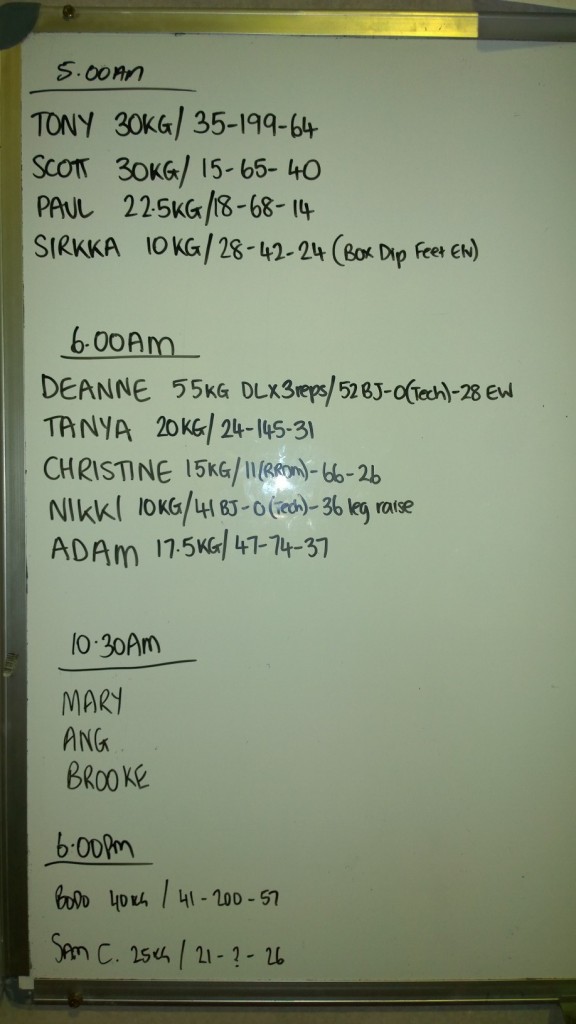 5.00AM
TONY 30KG/ 35-199-64
SCOTT 30KG/ 15-65-40
PAUL 22.5KG/18-68-14
SIRKKA 10KG/28-42-24 (Box Dip Feet Elv)
6.00AM
DEANNE 55KG DLx3reps/52BJ-0(Tech)-28 EW
TANYA 20KG/24-145-31
CHRISTINE 15KG/11(RROM)-66-26
NIKKI 10KG/41 BJ-0(Tech)-36 leg raise
ADAM 17.5KG/47-74-37
10.30AM
MARY
ANG
BROOKE
6.00PM
BODO 40KG / 41-200-57
SAM C. 25KG / 21-?-26